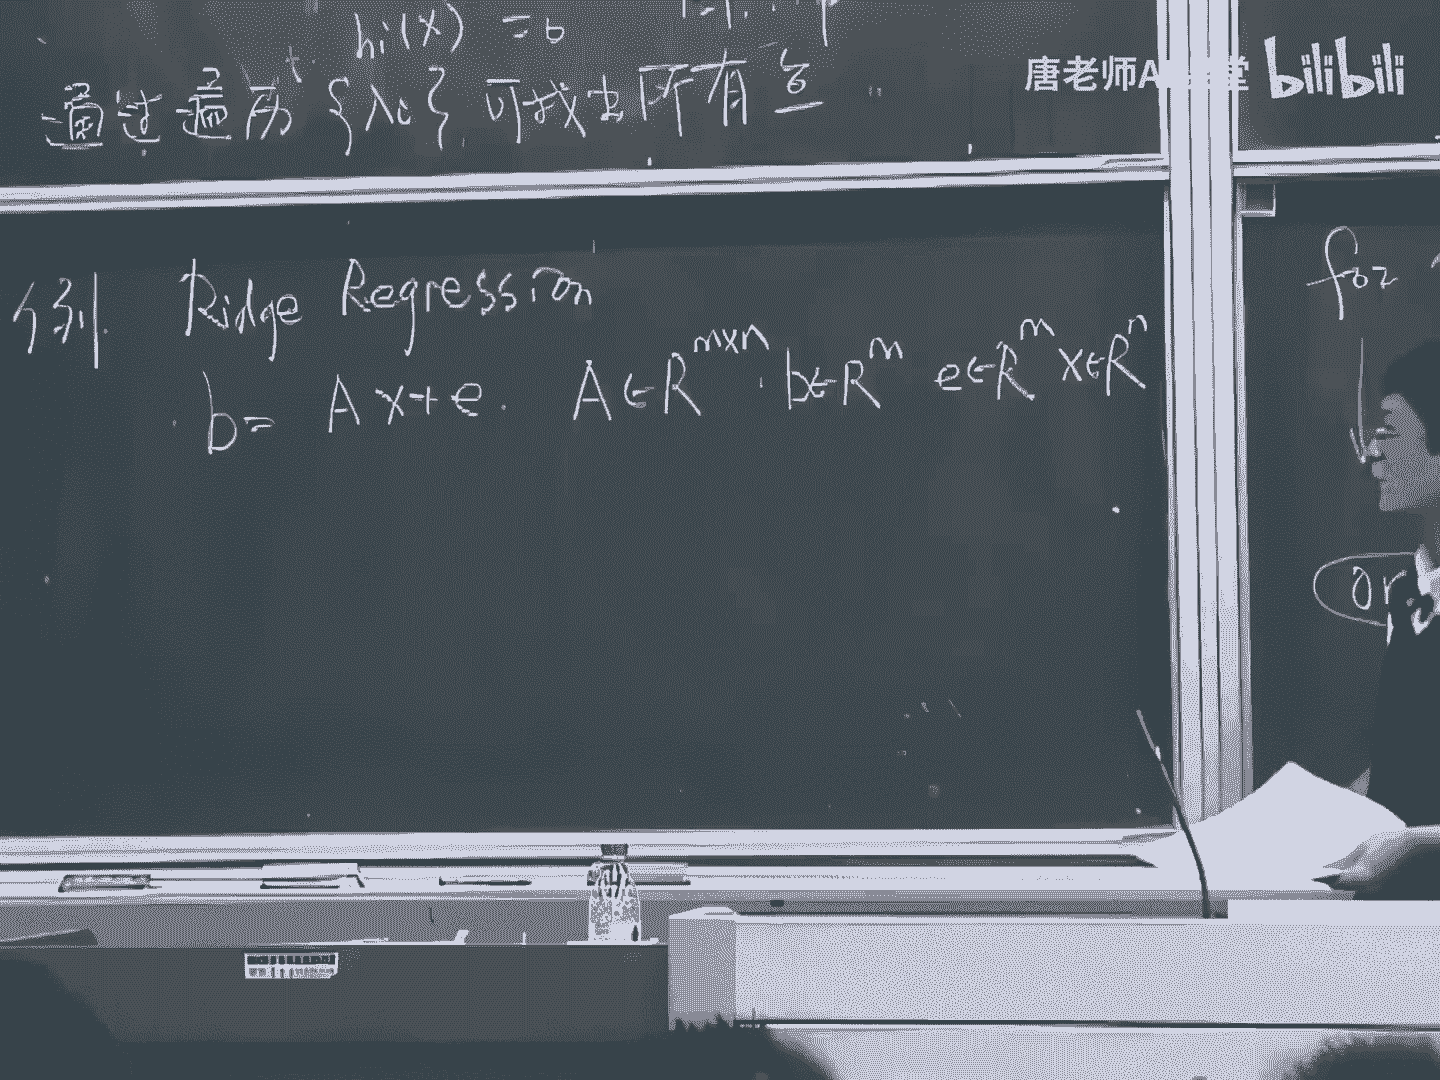 hi(x) = 0
通过遍历 {λi} 可找出所有
唐老师A 堂 bilibili
例. Ridge Regression
b = Ax+e. A∈R^{m×n}. b∈R^m e∈R^m x∈R^n
for
or